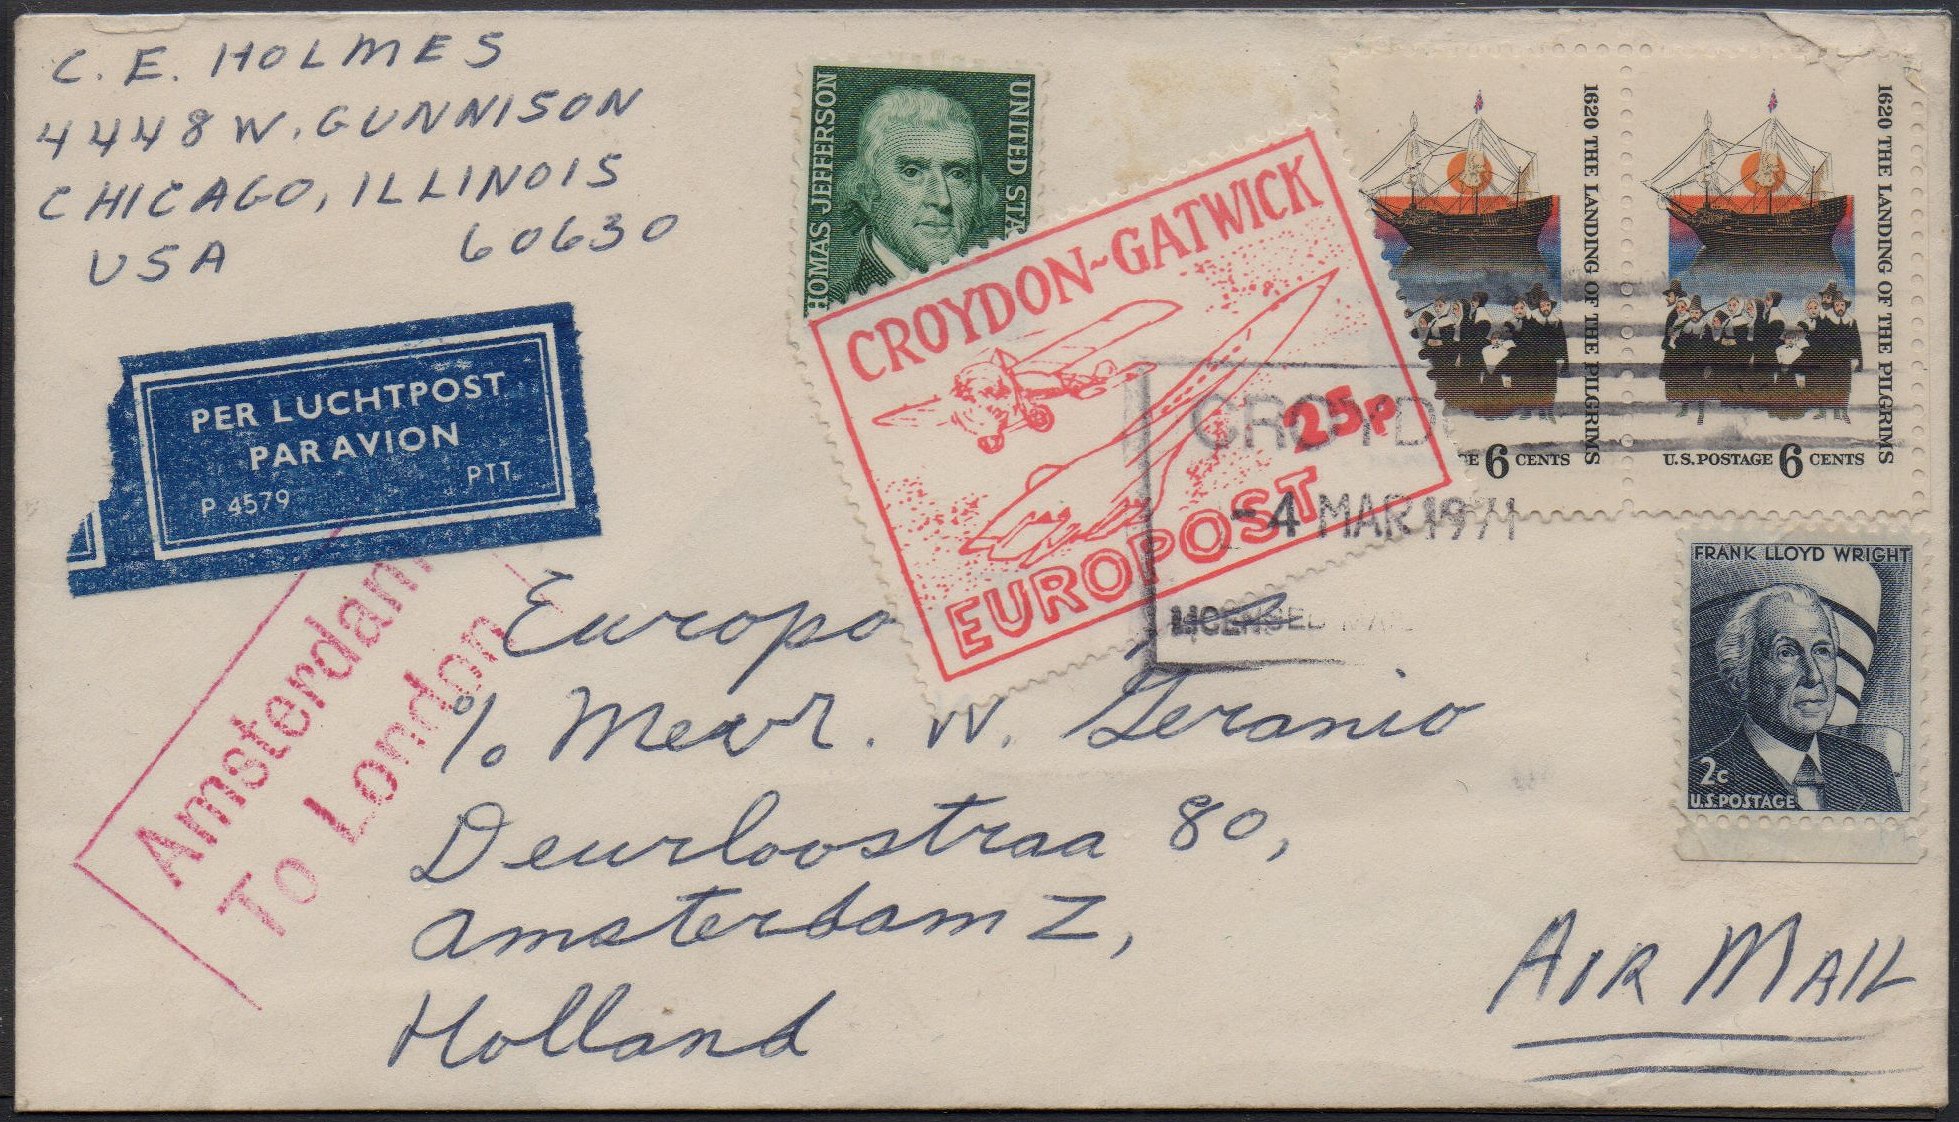 C. E. HOLMES
4448 W. GUNNISON
CHICAGO, ILLINOIS
USA 60630
THOMAS JEFFERSON
UNITED STA
CROYDON-GATWICK
25p
EUROPOST
1620 THE LANDING OF THE PILGRIMS
E 6 CENTS
1620 THE LANDING OF THE PILGRIMS
U.S. POSTAGE 6 CENTS
CROYD
-4 MAR 1971
LICENSED
PER LUCHTPOST
PAR AVION
P 4579 PTT.
Amsterdam
To London
FRANK LLOYD WRIGHT
2c
U.S. POSTAGE
Europo
c/o Mevr. W. Geranio
Deurloostraa 80,
Amsterdam Z,
Holland
AIR MAIL